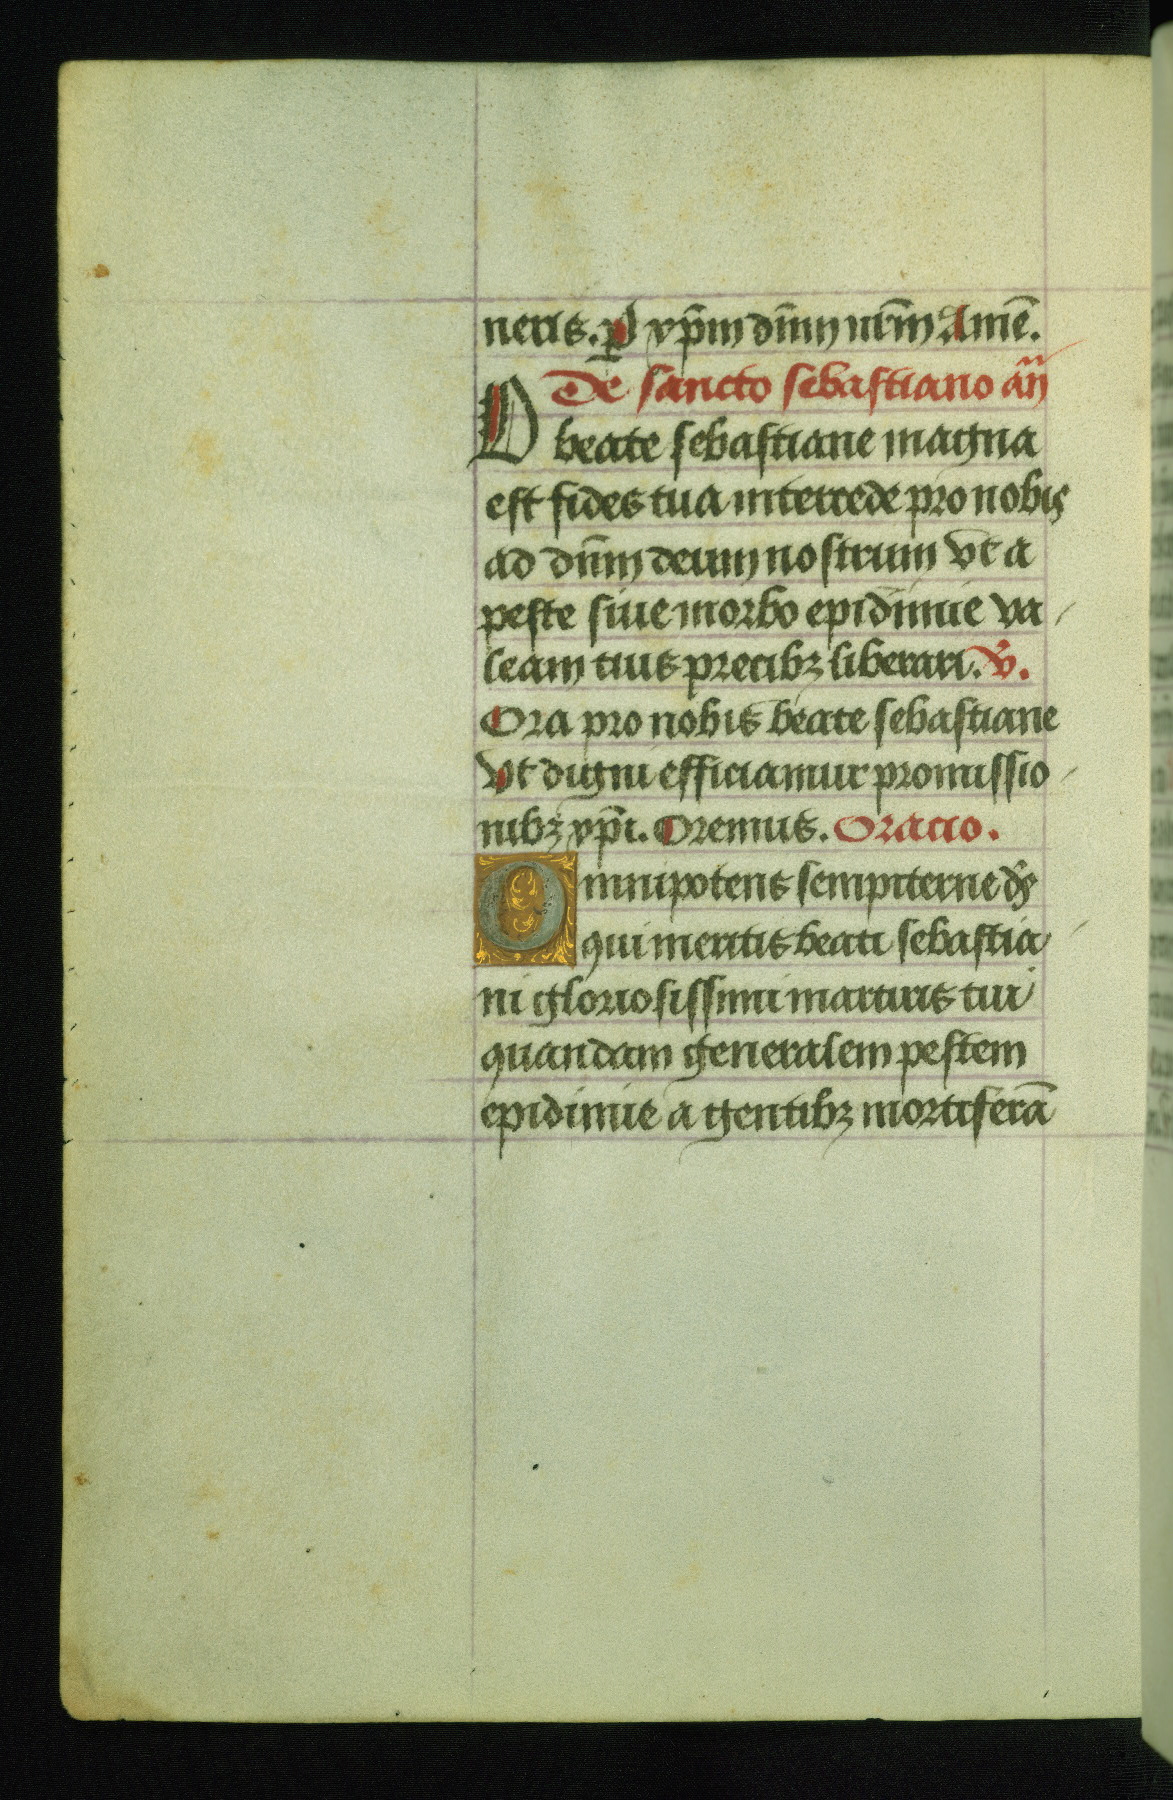 neris. P xp̄m dn̄m nr̄m Amē.
De sancto sebastiano an̄
O beate sebastiane magna
est fides tua intercede pro nobis
ad dn̄m deum nostrum vt a
peste siue morbo epidimie va
leam tuis precibꝫ liberari. v̄.
Ora pro nobis beate sebastiane
Vt digni efficiamur promissio
nibꝫ xp̄i. Oremus. Oracio.
Omnipotens sempiterne ds̄
qui meritis beati sebastia
ni gloriosissimi martiris tui
quandam generalem pestem
epidimie a gentibꝫ mortiferā